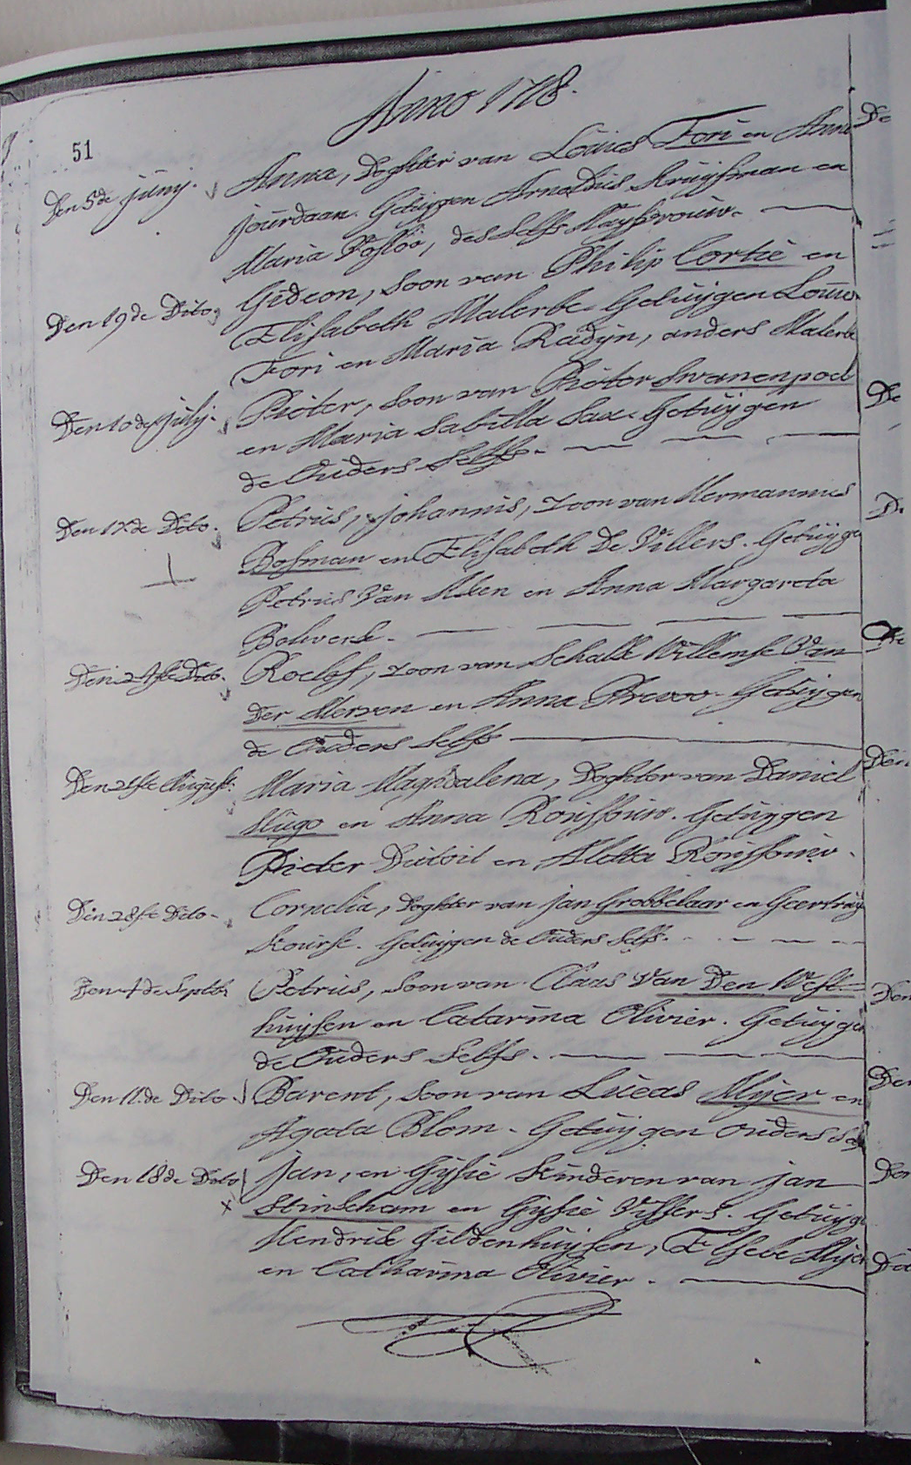 Anno 1718.
51
Den 5de Juny. Anna, Doghter van Louies Fori en Anna
Jourdaan. Getuygen Arnoldus Kruysman en
Maria Vosloo, des selfs Huysvrouw.
Den 19 de Dito, Gideon, Soon van Philip Cortie en
Elisabeth Malerbe. Getuygen Louis
Fori en Maria Radijn, anders Malerbe
Den 10 de July. Pieter, Soon van Pieter Swanenpoel
en Maria Sabilla Sax. Getuygen
de Ouders Selfs.
Den 17.de Dito. Petrus, Johannis, Zoon van Hermannus
Bosman en Elisabeth De Villers. Getuyge
Petrus Van Aken en Anna Margareta
Bolwerk.
Den 24ste Dito. Roelof, Zoon van Schalk Willemse Van
Der Merwen en Anna Prevoo. Getuygen
de Ouders Selfs
Den 21ste August. Maria Magdalena, Doghter van Daniel
Hugo en Anna Roussouw. Getuygen
Pieter Dutoit en Aletta Roussouw.
Den 28ste Dito. Cornelia, Doghter van Jan Grobbelaar en Geertruy
Kourse. Getuygen de Ouders Selfs.
Den 4 de Septb. Petrus, Soon van Claas Van Den West
huysen en Catarina Olivier. Getuyge
de Ouders Selfs.
Den 11.de Dito. Barent, Soon van Lucas Mijer en
Agata Blom. Getuygen Ouders
Den 18 de Dito Jan, en Gysie Kinderen van Jan
x Stinkham en Gysie Vissers. Getuyge
Hendrik Gildenhuysen, Elsebe Mijer
en Catharina Olivier.